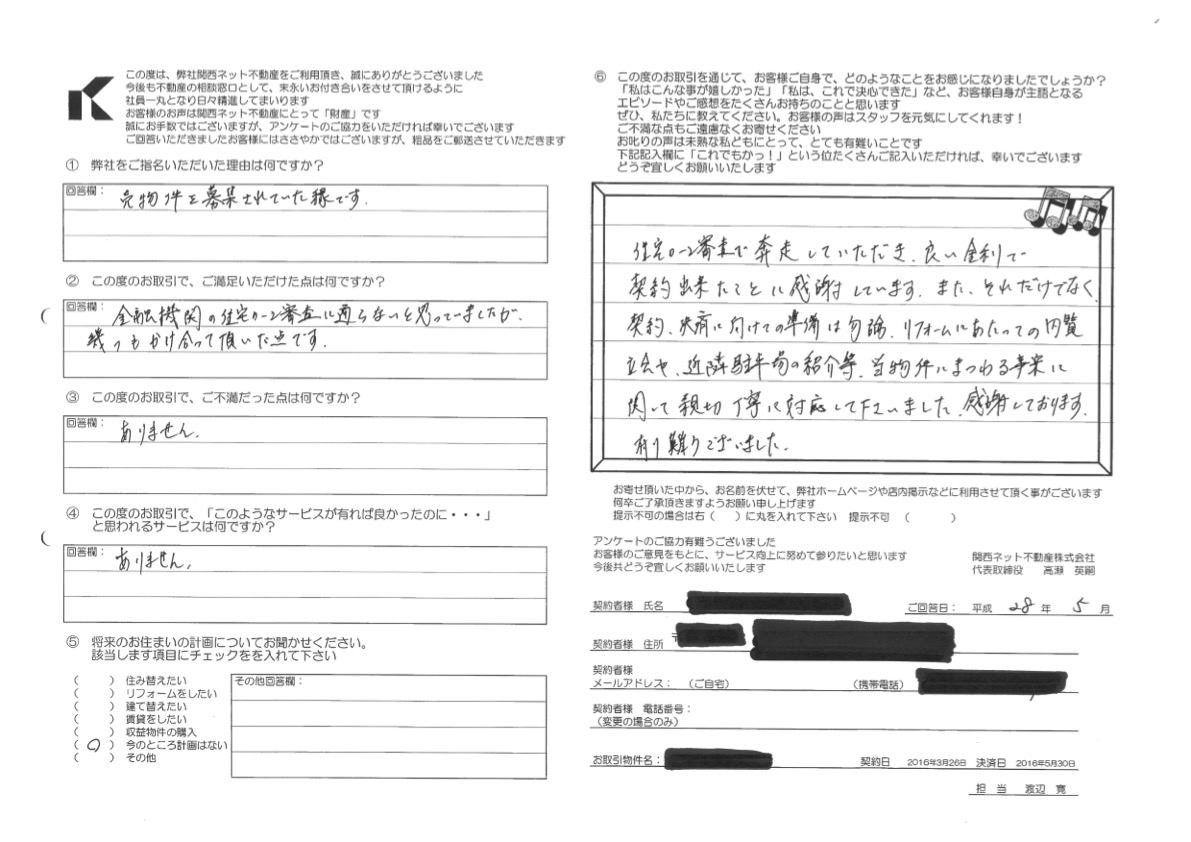 この度は、弊社関西ネット不動産をご利用頂き、誠にありがとうございました
今後も不動産の相談窓口として、末永いお付き合いをさせて頂けるように
社員一丸となり日々精進してまいります
お客様のお声は関西ネット不動産にとって「財産」です
誠にお手数ではございますが、アンケートのご協力をいただければ幸いでございます
ご回答いただきましたお客様にはささやかではございますが、粗品をご郵送させていただきます
① 弊社をご指名いただいた理由は何ですか？
回答欄： 売物件を募集されていた縁です.
② この度のお取引で、ご満足いただけた点は何ですか？
回答欄： 金融機関の住宅ローン審査に通らないと思っていましたが、
幾つもかけ合って頂いた点です.
③ この度のお取引で、ご不満だった点は何ですか？
回答欄： ありません.
④ この度のお取引で、「このようなサービスが有れば良かったのに・・・」
と思われるサービスは何ですか？
回答欄： ありません.
⑤ 将来のお住まいの計画についてお聞かせください。
該当します項目にチェックをを入れて下さい
（　　） 住み替えたい
（　　） リフォームをしたい
（　　） 建て替えたい
（　　） 賃貸をしたい
（　　） 収益物件の購入
（ ○ ） 今のところ計画はない
（　　） その他
その他回答欄：
⑥ この度のお取引を通じて、お客様ご自身で、どのようなことをお感じになりましたでしょうか？
「私はこんな事が嬉しかった」「私は、これで決心できた」など、お客様自身が主語となる
エピソードやご感想をたくさんお持ちのことと思います
ぜひ、私たちに教えてください。お客様の声はスタッフを元気にしてくれます！
ご不満な点もご遠慮なくお寄せください
お叱りの声は未熟な私どもにとって、とても有難いことです
下記記入欄に「これでもかっ！」という位たくさんご記入いただければ、幸いでございます
どうぞ宜しくお願いいたします
住宅ローン審査で奔走していただき、良い金利で
契約出来たことに感謝しています. また、それだけでなく、
契約、決済に向けての準備は勿論、リフォームにあたっての内覧
立会や、近隣駐車場の紹介等、当物件にまつわる事案に
関して親切丁寧に対応して下さいました. 感謝しております.
有り難うございました.
お寄せ頂いた中から、お名前を伏せて、弊社ホームページや店内掲示などに利用させて頂く事がございます
何卒ご了承頂きますようお願い申し上げます
提示不可の場合は右（　　）に丸を入れて下さい　提示不可　（　　　）
アンケートのご協力有難うございました
お客様のご意見をもとに、サービス向上に努めて参りたいと思います
今後共どうぞ宜しくお願いいたします
関西ネット不動産株式会社
代表取締役　高瀬　英嗣
契約者様　氏名
ご回答日： 平成 28 年 5 月
契約者様　住所 〒
契約者様
メールアドレス： （ご自宅） （携帯電話）
契約者様　電話番号：
（変更の場合のみ）
お取引物件名： 契約日 2016年3月26日 決済日 2016年5月30日
担　当　渡辺　寛